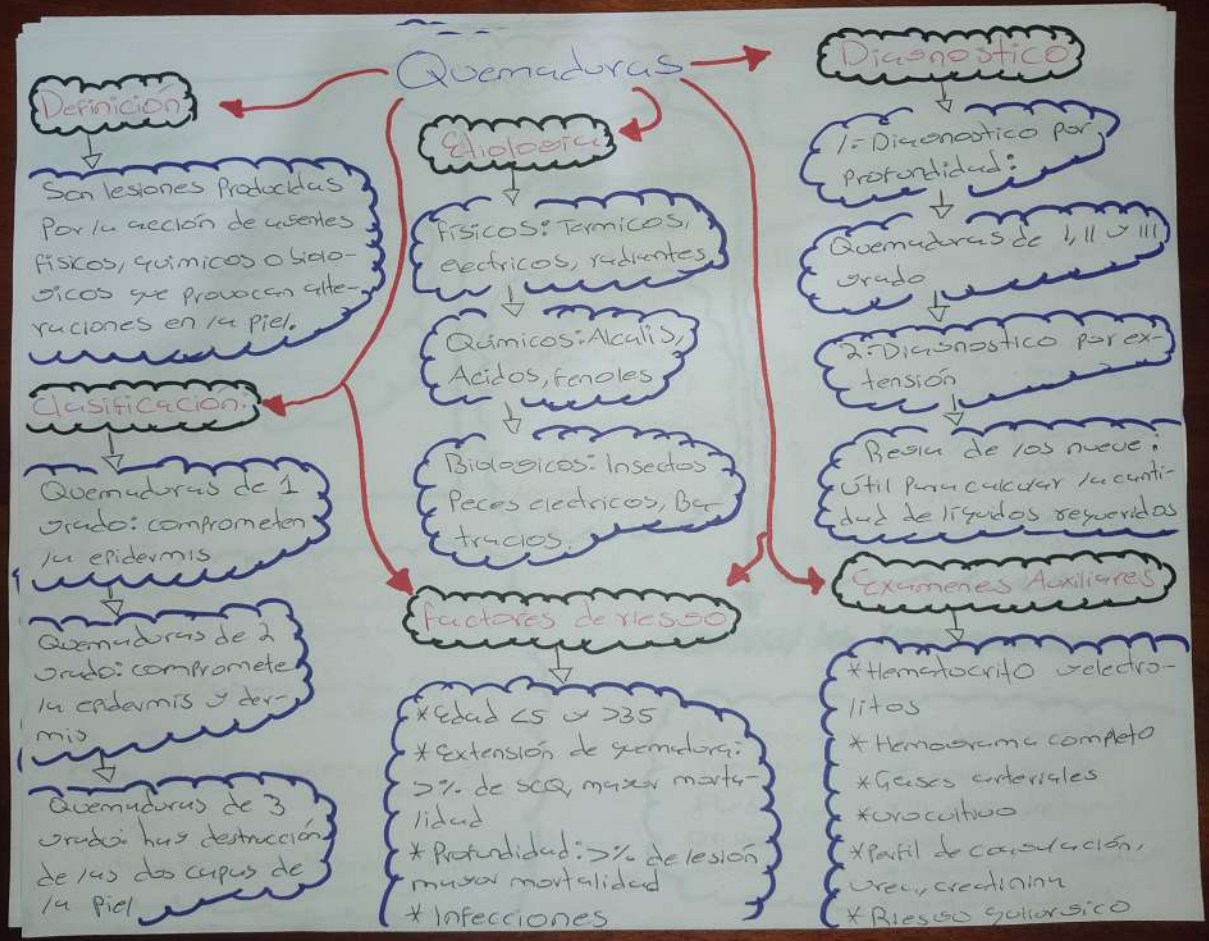 Quemaduras
Definición
Son lesiones Producidas
Por la acción de agentes
físicos, químicos o bioló-
gicos que provocan alte-
raciones en la piel.
Clasificación:
Quemaduras de 1
grado: comprometen
la epidermis
Quemaduras de 2
grado: compromete
la epidermis y der-
mis
Quemaduras de 3
grado: hay destrucción
de las dos capas de
la piel
Etiologia
Físicos: Termicos,
electricos, radiantes
Químicos: Alcalis,
Acidos, fenoles
Biologicos: Insectos
Peces electricos, Ba-
tracios.
Factores de riesgo
* Edad <5 y >35
* Extensión de quemadura:
>% de SCQ, mayor morta-
lidad
* Profundidad: >% de lesión
mayor mortalidad
* Infecciones
Diagnostico
1.- Diagnostico por
profundidad:
Quemaduras de I, II y III
grado
2.- Diagnostico por ex-
tensión
Regla de los nueve:
útil para calcular la canti-
dad de líquidos requeridos
Exámenes Auxiliares
* Hematocrito y electro-
litos
* Hemograma completo
* Gases arteriales
* Urocultivo
* Perfil de coagulación,
urea, creatinina
* Riesgo